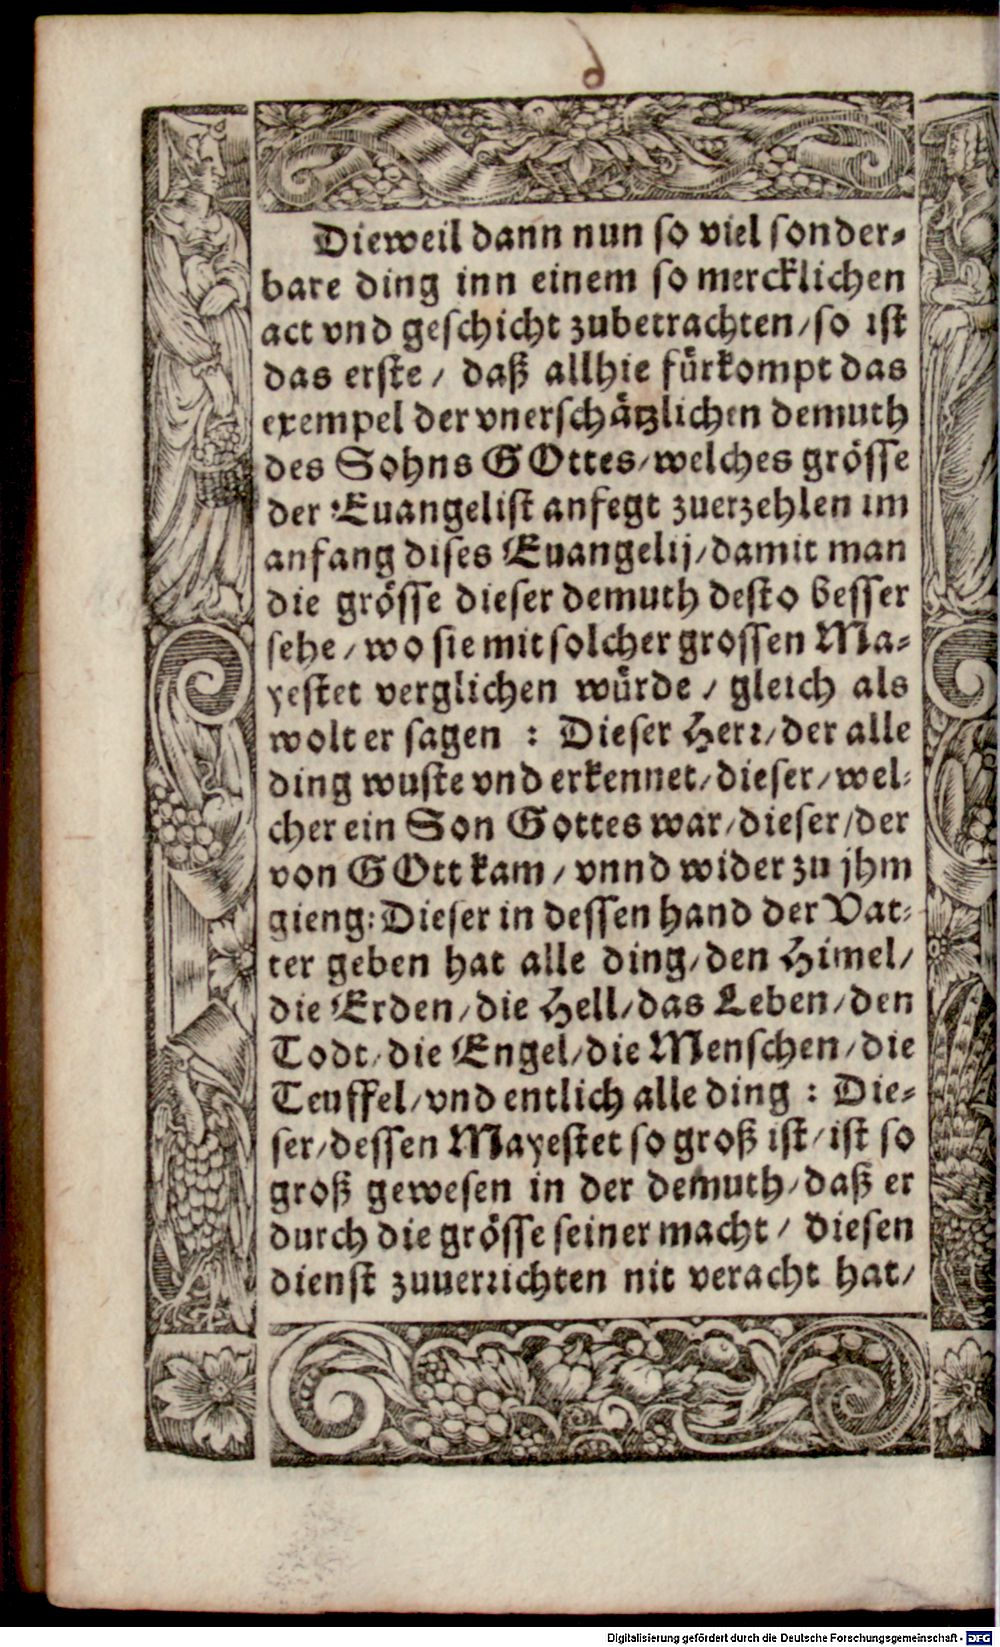 Dieweil dann nun so viel sonder-
bare ding inn einem so mercklichen
act vnd geschicht zubetrachten/so ist
das erste/ daß allhie fürkompt das
exempel der vnerschätzlichen demuth
des Sohns GOttes/welches grösse
der Euangelist anfegt zuerzehlen im
anfang dises Euangelij/damit man
die grösse dieser demuth desto besser
sehe/wo sie mit solcher grossen Ma-
yestet verglichen würde/ gleich als
wolt er sagen : Dieser Herr/der alle
ding wuste vnd erkennet/dieser/wel-
cher ein Son Gottes war/dieser/der
von GOtt kam/ vnnd wider zu jhm
gieng: Dieser in dessen hand der Vat-
ter geben hat alle ding/den Himel/
die Erden/die Hell/das Leben/den
Todt/die Engel/die Menschen/die
Teuffel/vnd entlich alle ding : Die-
ser/dessen Mayestet so groß ist/ist so
groß gewesen in der demuth/daß er
durch die grösse seiner macht/ diesen
dienst zuuerrichten nit veracht hat/
Digitalisierung gefördert durch die Deutsche Forschungsgemeinschaft - DFG